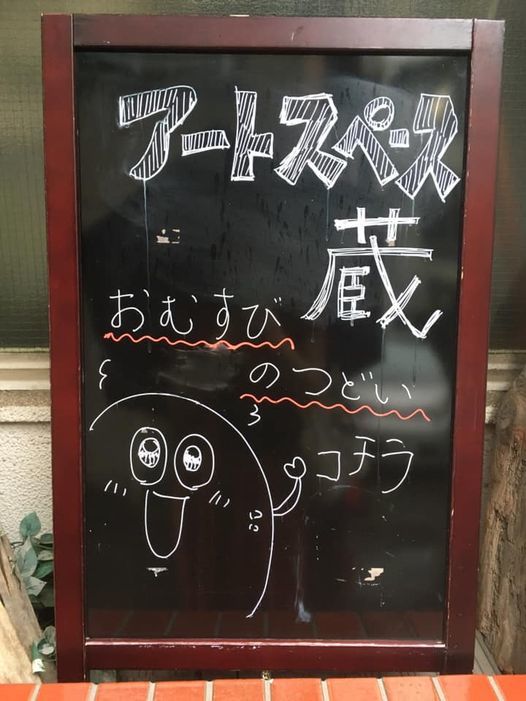 アートスペース
蔵
おむすび
のつどい
コチラ